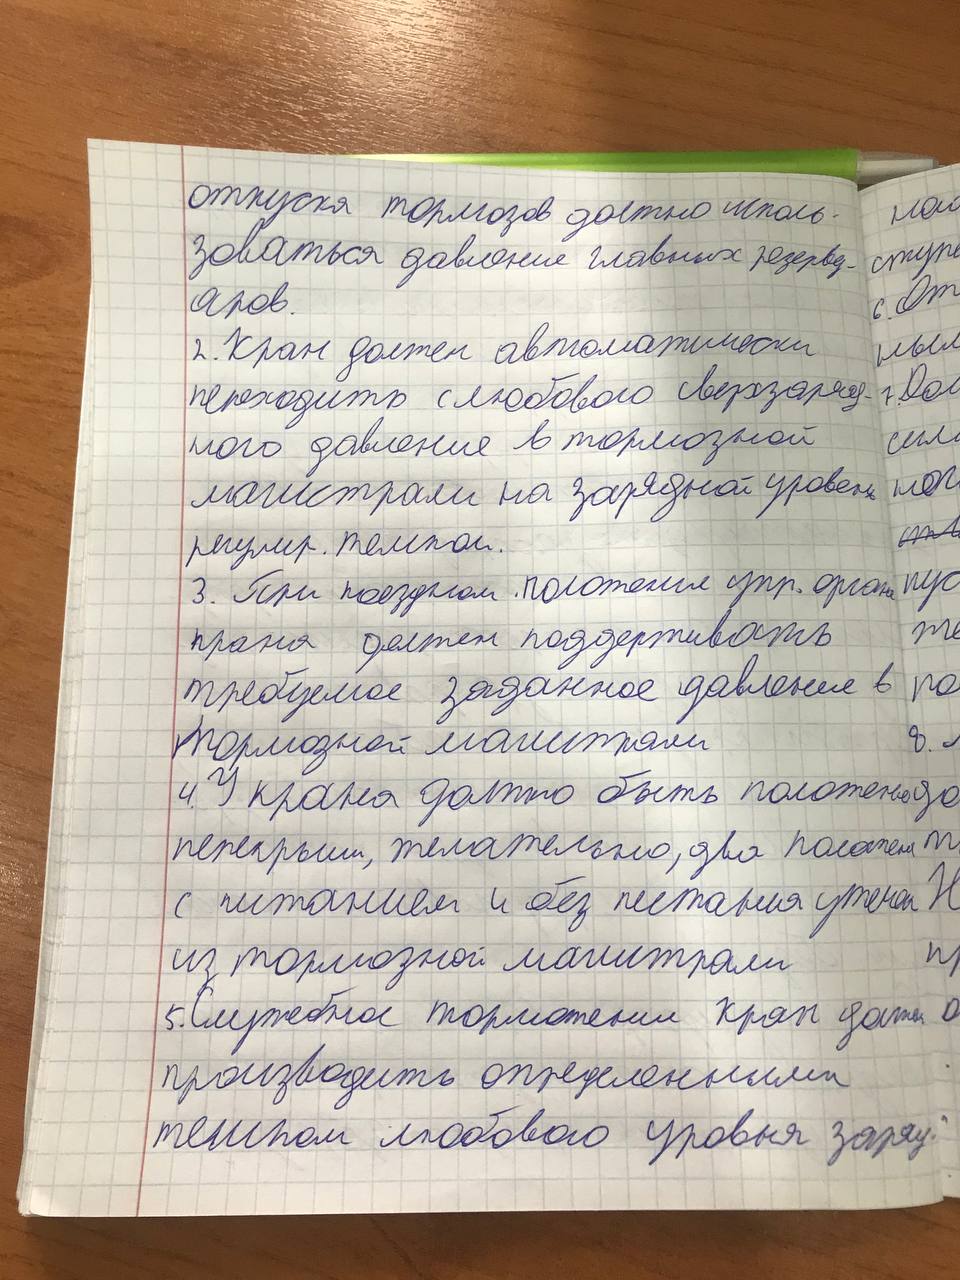 отпуска тормозов должно исполь-
зоваться давление главных резерву-
аров.
2. Кран должен автоматически
переходить с любового сверхзаряд-
ного давление в тормозной
магистрали на зарядной уровень
регулир. темпом.
3. При поездном положения упр. орган
крана должен поддерживать
требуемое заданное давление в
тормозной магистрали
4. У крана должно быть положение
перекрыши, желательно, два положен
с питанием и без питания утечек
из тормозной магистрали
5. Служебное торможении кран должен
производить определенными
темпом любового уровня заряд.
мо
ступе
6. От
ным
7. Дол
силь
ног
пус
же
ра
8.
до
Н
пр